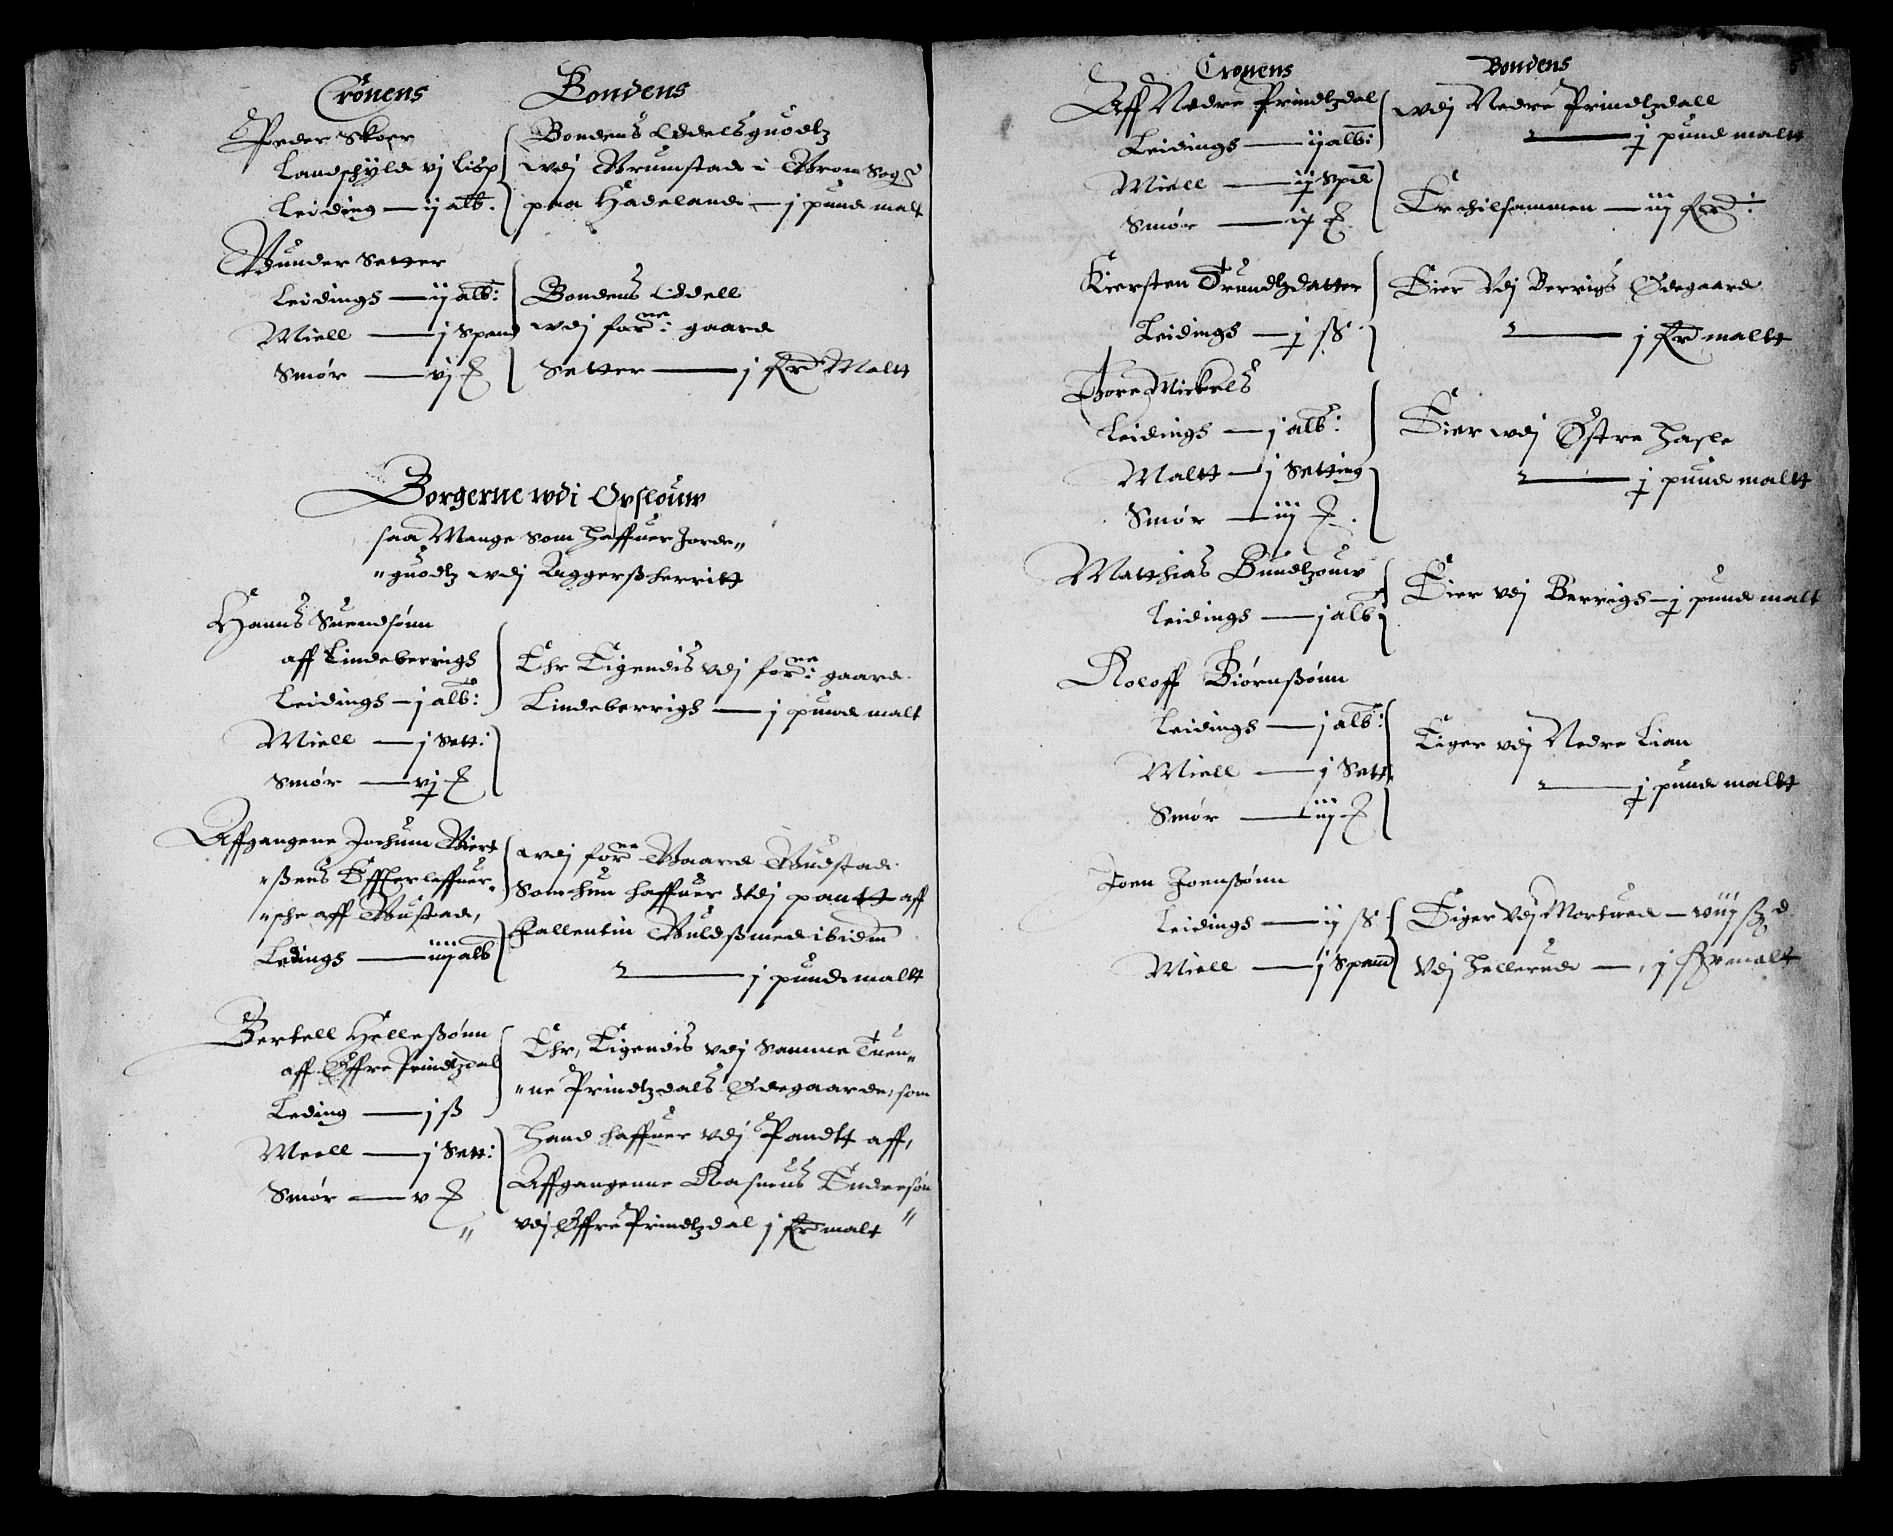 Crönens Bondens
Peder Skoer
Landschyld vj Lisp
Leiding — ij alb.
Bondens Oddelsguodtz
wdj Brumstad i Gran Sogn
paa Hadeland — j pund malt
Gunder Setter
Leidings — ij alb:
Miell — j Spand
Smör — vj
Bondens Oddell
wdj forne: gaard
Setter — j Malt
Borgerne wdi Opslouw
saa Mange som Haffuer Jorde„
„guodtz wdj Aggersherritt
Hanns Suendsönn
aff Lindeberrigh
Leidings — j alb:
Miell — j Sett:
Smör — vj
Ehr Eigendis vdj forne: gaard
Lindeberrigh — j pund malt
Affgangene Jochum Biert
„ssens Effterleffuer„
„sche aff Gustad,
Ledings — iiij alb
wdj forne Gaard Gudstad
Som hun haffuer Vdj pantt aff
Fallentin Guldssmed ibidm
— j pund malt
Bertell Hellessönn
aff Öffre Prindtzdal
Leding — j ß
Meell — j Sett:
Smör — v
Ehr, Eigendis vdj Samme Tuen„
„ne Prindtzdals Ödegaarde, som
Hand haffuer vdj Pandtt aff,
Affgangenne Rasmus Endresön
vdj Öffre Prindtzdal j malt
Cronens Bondens
Aff Nedre Prindtzdal
Leidings — ij alb:
Miell — ij Spd
Smør — ix
wdj Nedre Prindtzdall
— j pund maltt
Er thilsammen — iij
Kiersten Trundtzdatter
Leidings — j ß
Eier Vdj Berrigs Ödegaard
— j maltt
Tore Mickels
Leidings — j alb:
Maltt — j Setting
Smör — iij
Eier wdj Östre Hasle
— j pund maltt
Matthias Bundtzouw
Leidings — j alb
Eier vdj Berrigh — j pund malt
Roloff Biörnssönn
Leidings — j alb:
Miell — j Sett.
Smör — iij
Eiger vdj Nedre Lian
— j pund maltt
Joen Joenssönn
Leidings — ij ß
Miell — j Spand
Eiger Vdj Mortued — viij
Vdj Hellerud — j malt